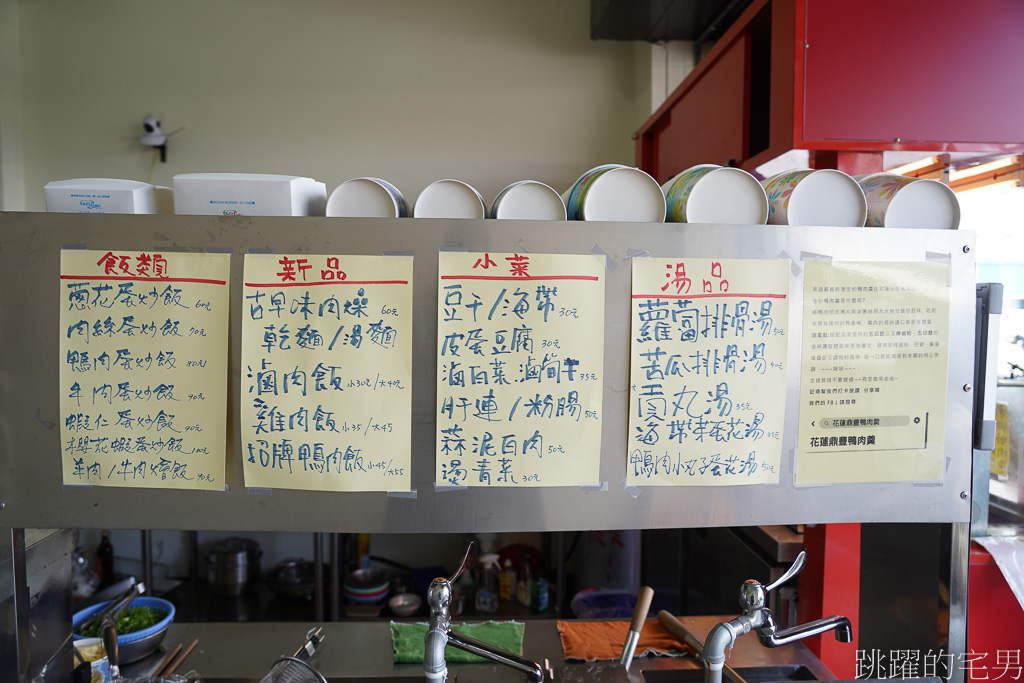 飯類
蔥花蛋炒飯 60元
肉絲蛋炒飯 70元
鴨肉蛋炒飯 80元
牛肉蛋炒飯 90元
蝦仁蛋炒飯 90元
櫻花蝦蛋炒飯 100元
羊肉/牛肉燴飯 90元
新品
古早味肉燥 60元
乾麵/湯麵
滷肉飯 小30/大40
雞肉飯 小35/大45
招牌鴨肉飯 小45/大55
小菜
豆干/海帶 30元
皮蛋豆腐 30元
滷白菜.滷筍干 35元
肝連/粉腸 50元
蒜泥白肉 50元
燙青菜 30元
湯品
蘿蔔排骨湯 50元
苦瓜排骨湯
貢丸湯 35元
海帶芽蛋花湯
鴨肉小丸子蛋花湯 50元
記得幫我們打卡按讚 分享喔
我們的 FB↓請搜尋
花蓮鼎豐鴨肉羹
花蓮鼎豐鴨肉羹
跳躍的宅男